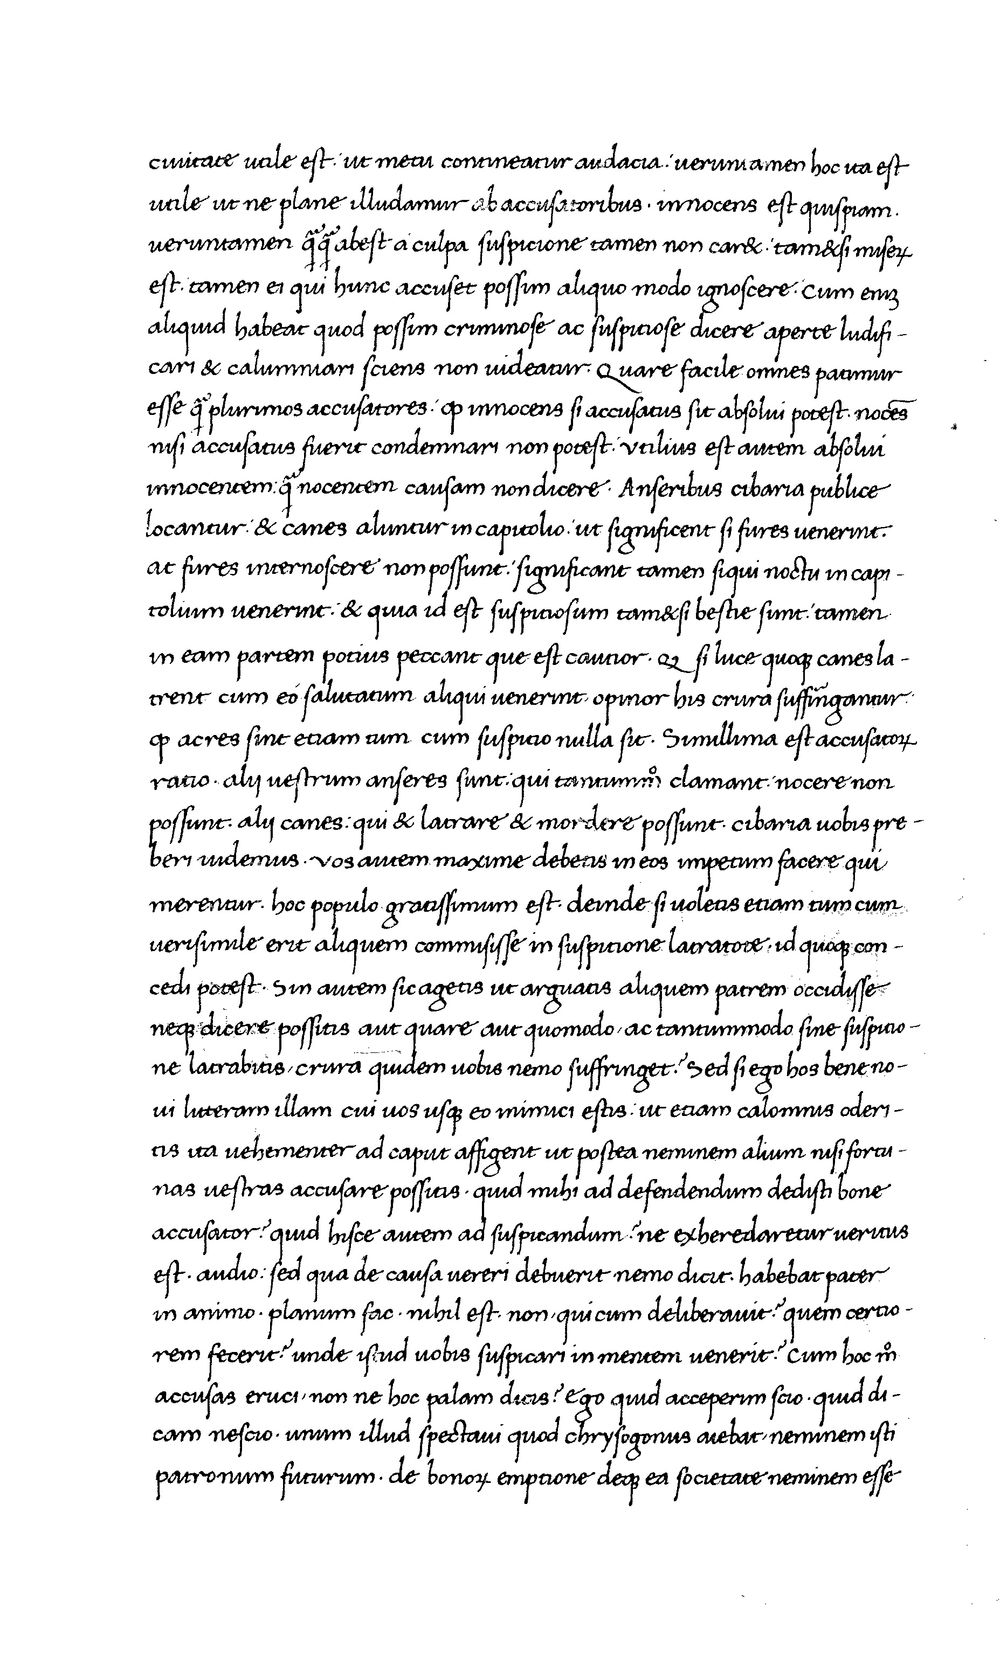 ciuitate utile est: ut metu contineatur audacia: ueruntamen hoc ita est
utile ut ne plane illudamur ab accusatoribus. innocens est quispiam.
ueruntamen qᷓqᷓ abest a culpa suspicione tamen non car&: tam&si miseꝝ
est. tamen ei qui hunc accuset possim aliquo modo ignoscere: Cum eniꝫ
aliquid habeat quod possim criminose ac suspitiose dicere aperte ludifi-
cari & calumniari sciens non uideatur. Quare facile omnes patimur
esse qᷓ plurimos accusatores: ꝙ innocens si accusatus sit absolui potest. nocēs
nisi accusatus fuerit condemnari non potest. Vtilius est autem absolui
innocentem: qᷓ nocentem causam non dicere. Anseribus cibaria publice
locantur: & canes aluntur in capitolio: ut significent si fures uenerint.
at fures internoscere non possunt: significant tamen siqui noctu in capi-
tolium uenerint: & quia id est suspitiosum tam&si bestie sunt: tamen
in eam partem potius peccant que est cautior. Q si luce quoqꝫ canes la-
trent cum eó salutatum aliqui uenerint. opinor his crura suffringantur:
ꝙ acres sint etiam tum cum suspitio nulla sit. Simillima est accusatoꝝ
ratio. alij uestrum anseres sunt: qui tantummͦ clamant: nocere non
possunt. alij canes: qui & latrare & mordere possunt. cibaria uobis pre-
beri uidemus. Vos autem maxime debetis in eos impetum facere qui
merentur. hoc populo gratissimum est. deinde si uoletis etiam tum cum
uerisimile erit aliquem commisisse in suspitione latratote. id quoqꝫ con-
cedi potest. Sin autem sic agetis ut arguatis aliquem patrem occidisse
neqꝫ dicere possitis aut quare aut quomodo, ac tantummodo sine suspitio-
ne latrabitis, crura quidem uobis nemo suffringet? Sed si ego hos bene no-
ui litteram illam cui uos usqꝫ eo inimici estis: ut etiam calomnis oderi-
tis ita uehementer ad caput affigent ut postea neminem alium nisi fortu-
nas uestras accusare possitis. quid mihi ad defendendum dedisti bone
accusator? quid hisce autem ad suspicandum? ne exheredaretur ueritus
est. audio: sed qua de causa uereri debuerit nemo dicit. habebat pater
in animo. planum fac. nihil est. non. qui cum deliberauit? quem certio-
rem fecerit? unde istud uobis suspicari in mentem uenerit? Cum hoc mͦ
accusas eruci, non ne hoc palam dicis? Ego quid acceperim scio. quid di-
cam nescio. unum illud spectaui quod chrysogonus aiebat, neminem isti
patronum futurum. de bonoꝝ emptione deqꝫ ea societate neminem esse